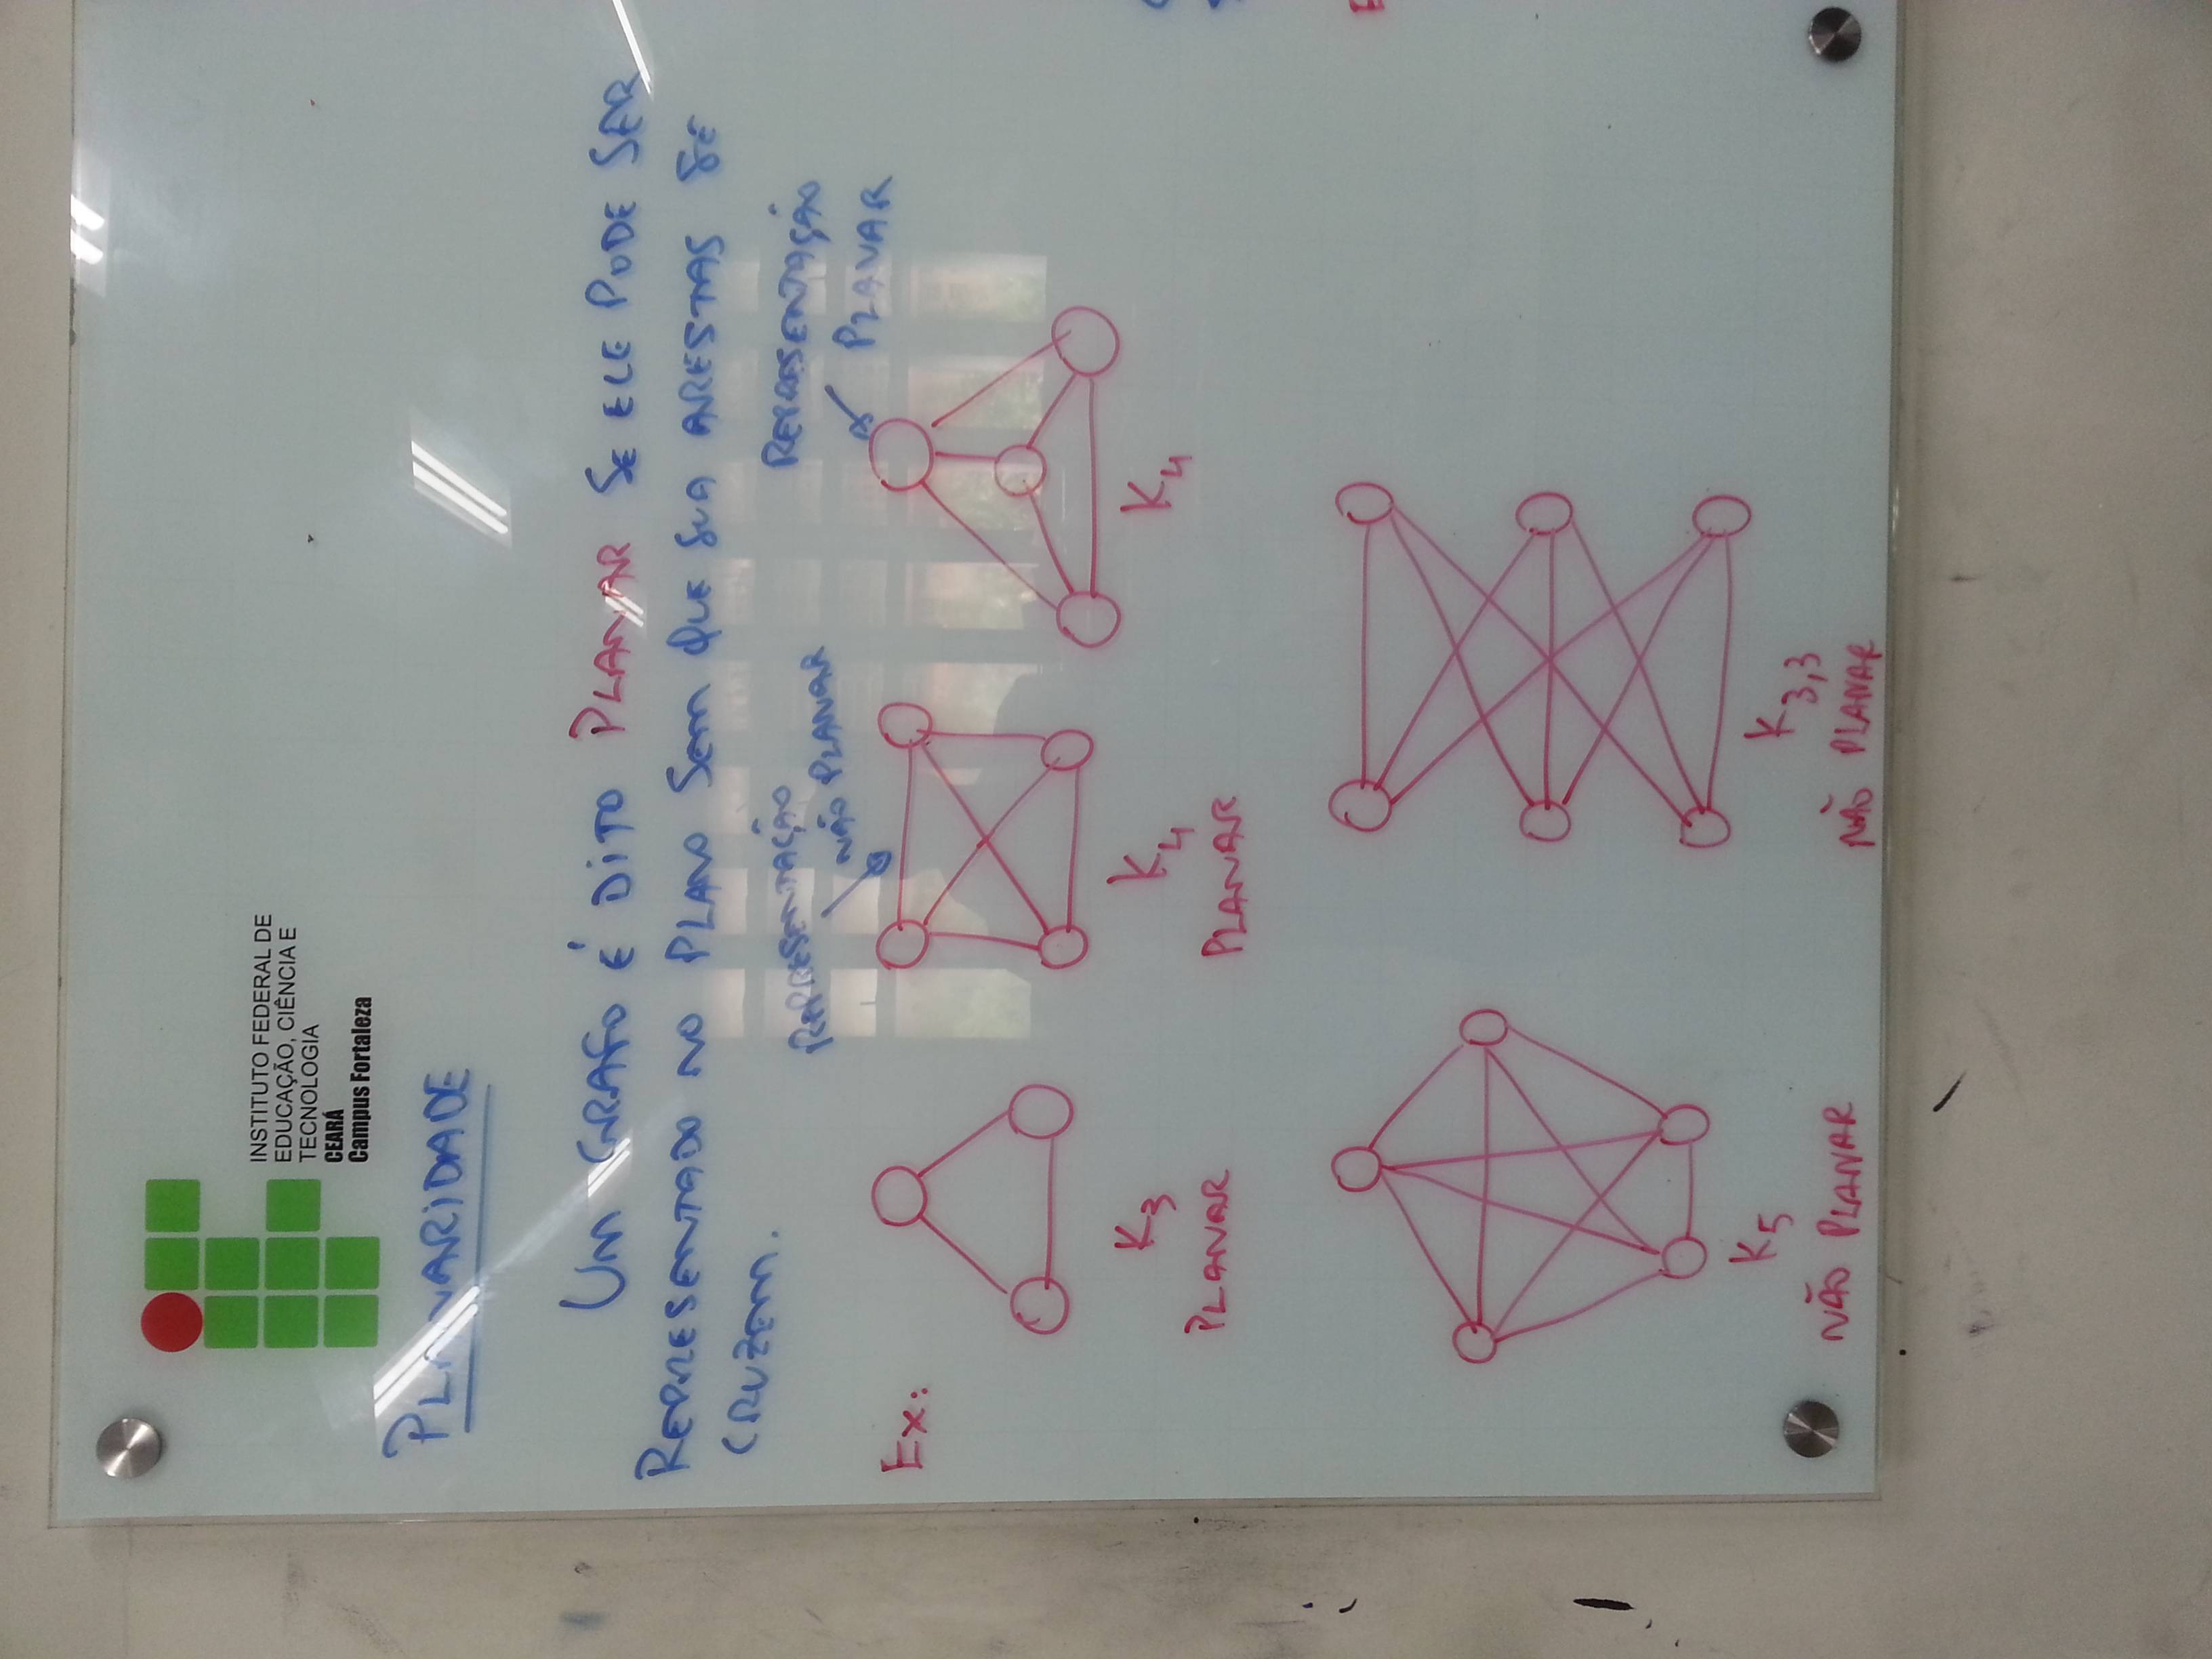 INSTITUTO FEDERAL DE
EDUCAÇÃO, CIÊNCIA E
TECNOLOGIA
CEARÁ
Campus Fortaleza
PLANARIDADE
UM GRAFO É DITO PLANAR SE ELE PODE SER
REPRESENTADO NO PLANO SEM QUE SUA ARESTAS SE
CRUZEM.
Ex:
REPRESENTAÇÃO
NÃO PLANAR
REPRESENTAÇÃO
PLANAR
K3
PLANAR
K4
PLANAR
K4
K5
NÃO PLANAR
K3,3
NÃO PLANAR